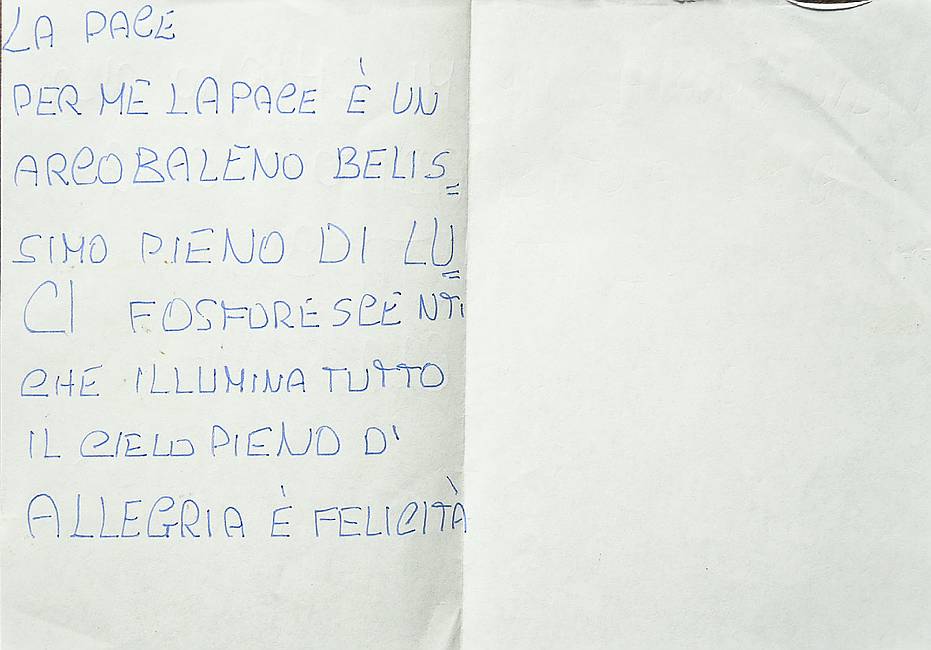 LA PACE
PER ME LA PACE È UN
ARCOBALENO BELIS=
SIMO PIENO DI LU=
CI FOSFORESCENTI
CHE ILLUMINA TUTTO
IL CIELO PIENO D'
ALLEGRIA È FELICITÀ